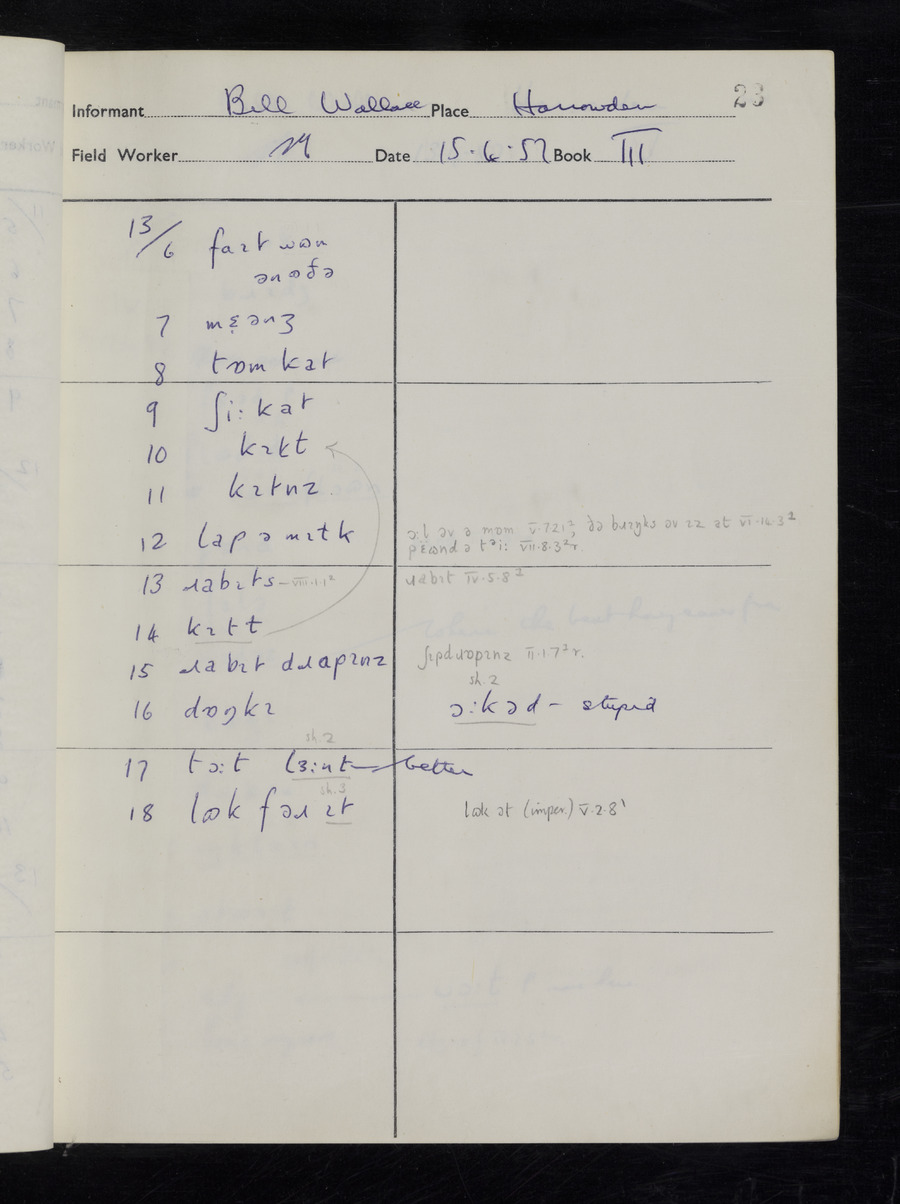 23
Informant Bill Wallace Place Harrowden
Field Worker M Date 15.6.57 Book III
13/6 faɪt wɒn
ənʊðə
7 mɛ̣ənʒ
8 tɒm kat
9 ʃi: kat
10 kɪtt
11 kɪtnz
12 lap ə mɪtk
ɔ:l əv ə mɒm V.7.21², ðə bɪzŋks əv ɪz at VI.14.3²
pɛʊnd ə tᵊi: VII.8.3²r.
13 ɹabɪts – VIII.1.1² ɹabɪt IV.5.8²
14 kɪtt
15 ɹabɪt dɹapɪnz ʃɪpdɹɒpɪnz II.1.7²r.
sh.2
16 dɒŋkɪ ɔ:kəd – stupid
sh.2
17 tɔ:t lɜ:nt better
sh.3
18 lʊk fəɹ ɪt lʊk ət (imper.) V.2.8¹